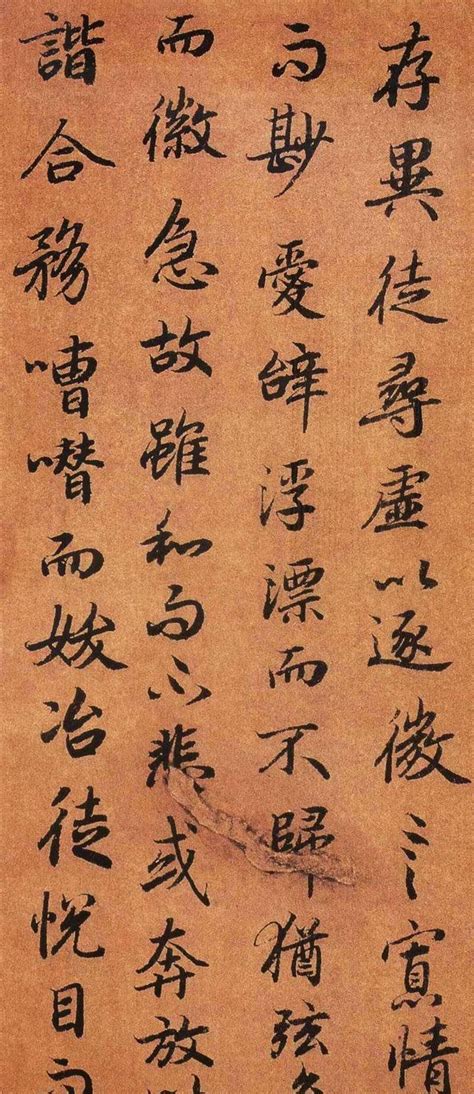 存異徒尋虛以逐微言寡情
而尠愛辭浮漂而不歸猶弦
而徽急故雖和而不悲或奔放以
諧合務嘈噆而妖冶徒悅目而